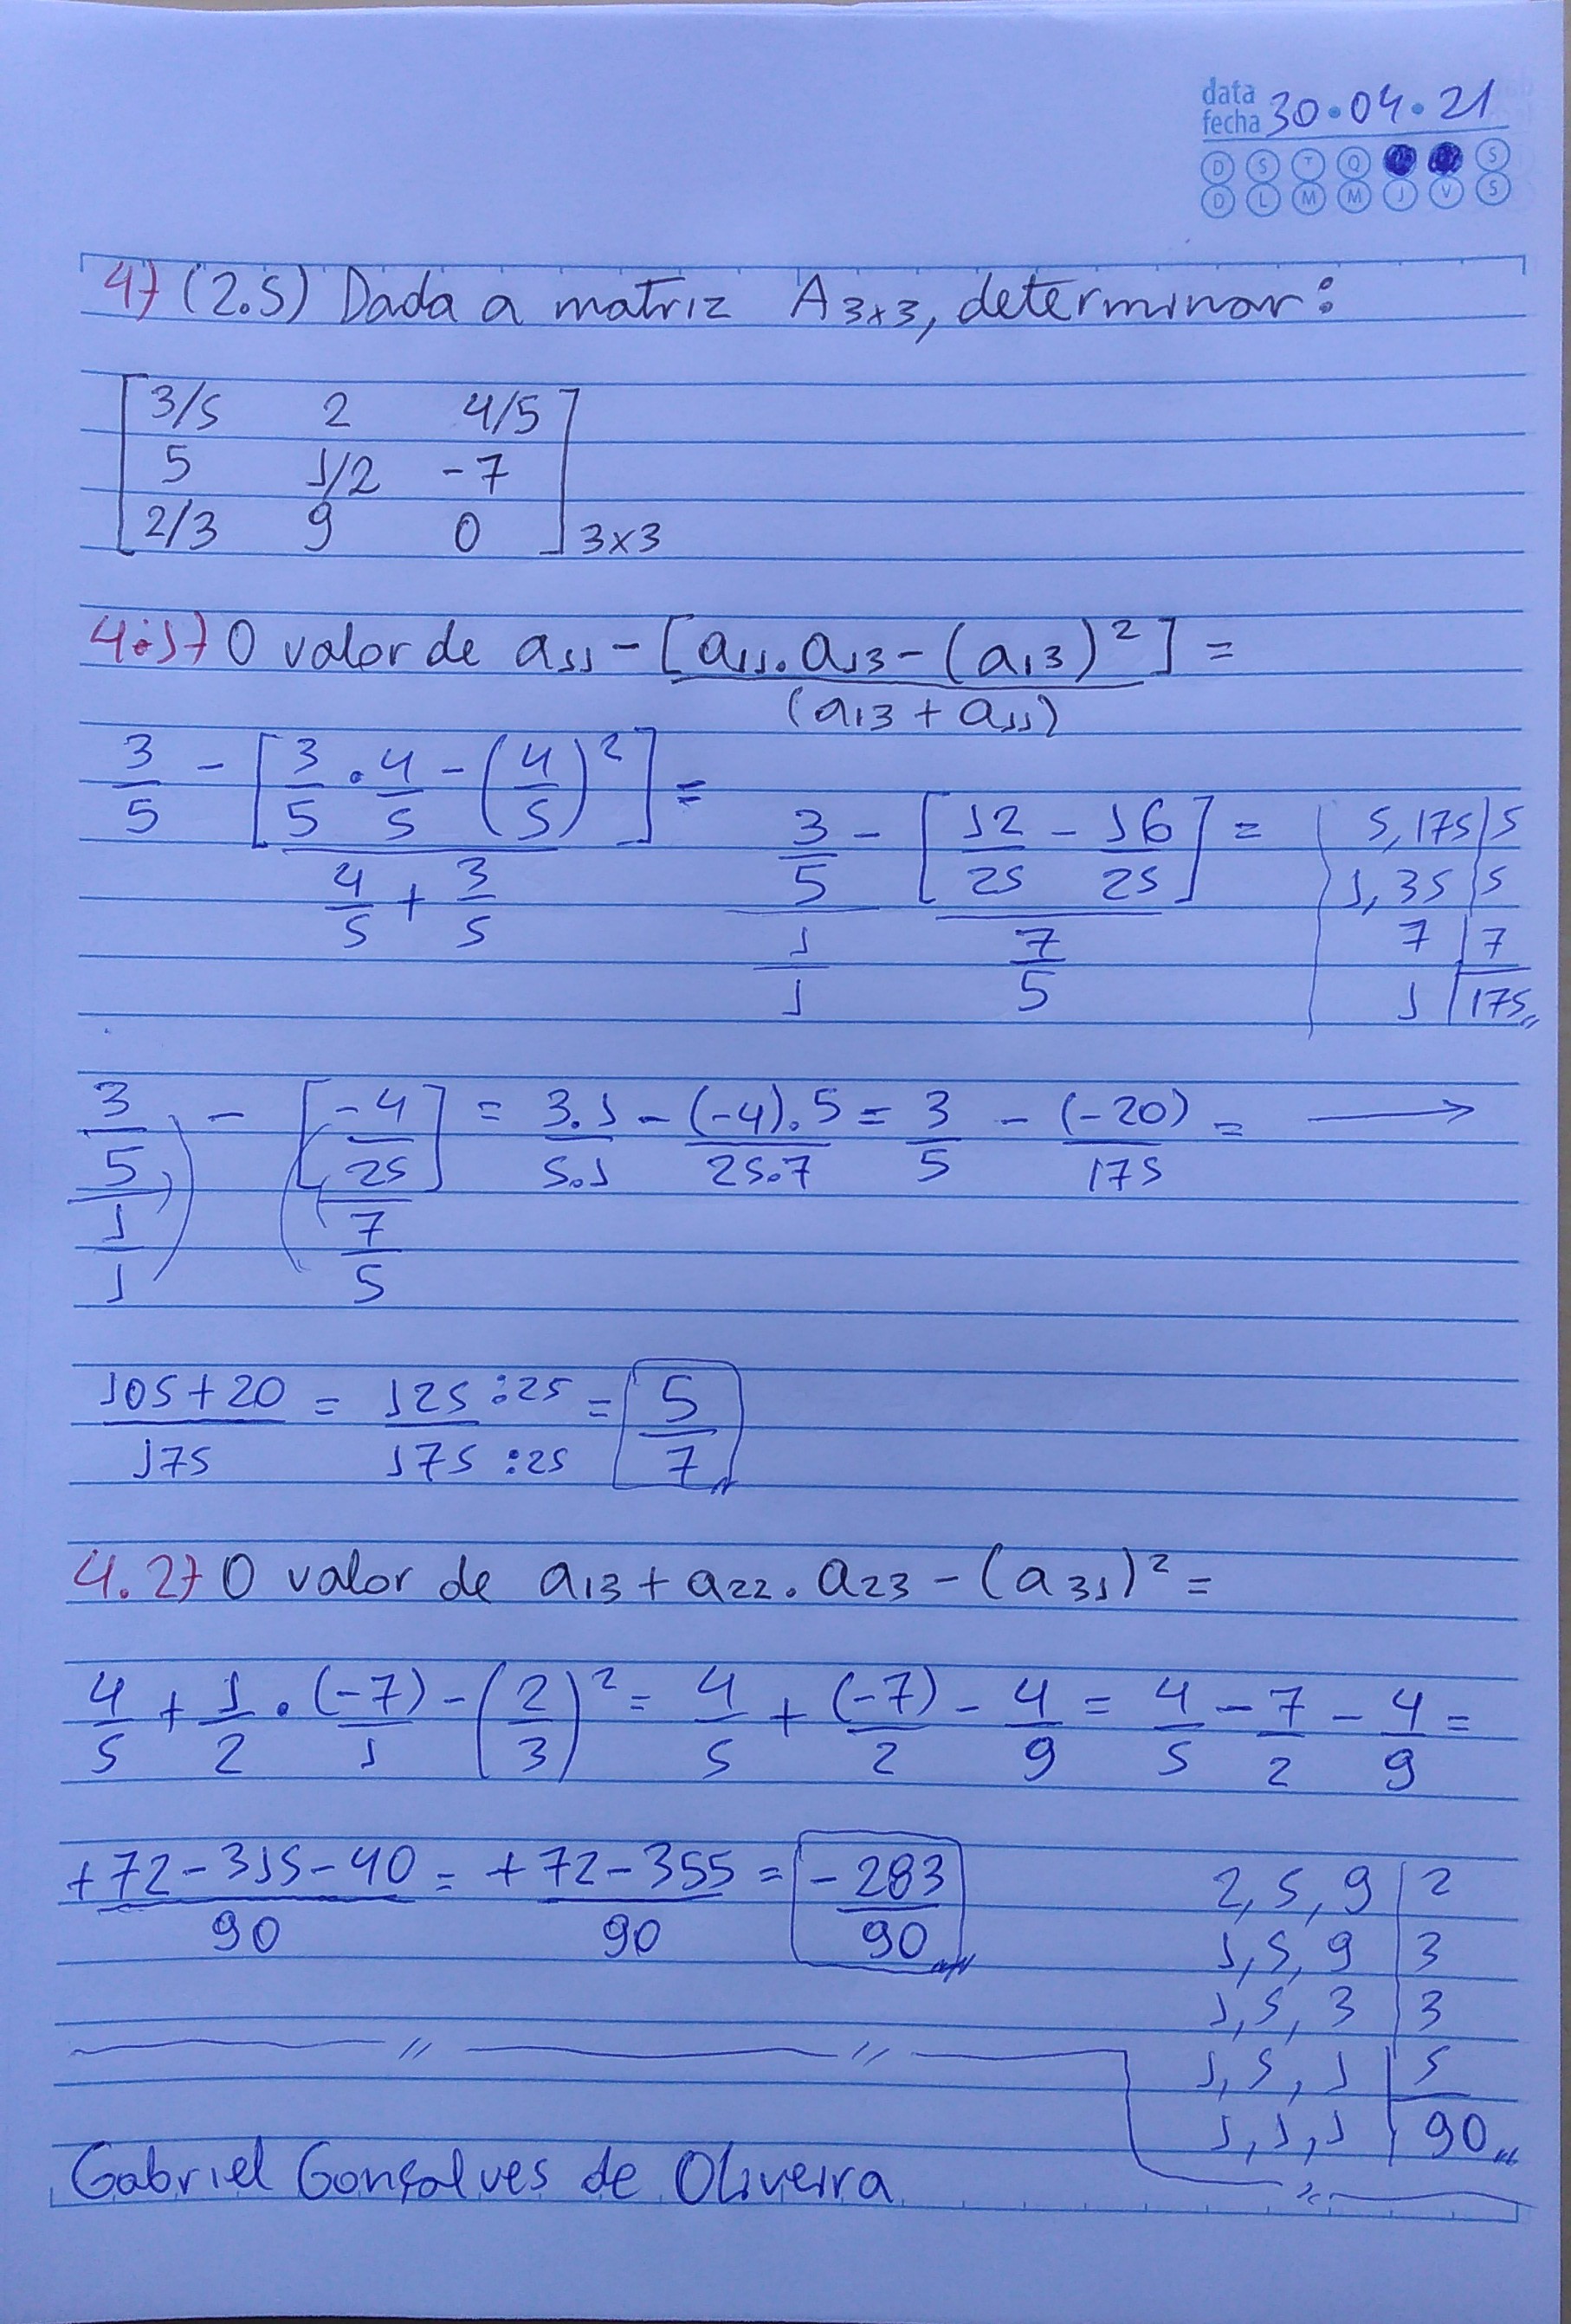 data
fecha 30.04.21
D S T Q S
D L M M J V S
4) (2.5) Dada a matriz A3x3, determinar:
[ 3/5 2 4/5
5 1/2 -7
2/3 9 0 ] 3x3
4.1) O valor de a11 - [a11 . a13 - (a13)²] / (a13 + a11) =
3/5 - [3/5 . 4/5 - (4/5)²] / (4/5 + 3/5) =
3/5 / 1/1 - [12/25 - 16/25] / 7/5 =
5, 175 | 5
1, 35 | 5
7 | 7
1 | 175,,
3/5 / 1/1 - [-4/25] / 7/5 = 3.1/5.1 - (-4).5/25.7 = 3/5 - (-20)/175 = →
105+20/175 = 125:25/175:25 = 5/7
4.2) O valor de a13 + a22 . a23 - (a31)² =
4/5 + 1/2 . (-7)/1 - (2/3)² = 4/5 + (-7)/2 - 4/9 = 4/5 - 7/2 - 4/9 =
+72-315-40/90 = +72-355/90 = -283/90
2, 5, 9 | 2
1, 5, 9 | 3
1, 5, 3 | 3
1, 5, 1 | 5
1, 1, 1 | 90,,
Gabriel Gonçalves de Oliveira